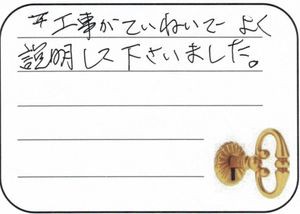 工事がていねいで よく
説明して下さいました。